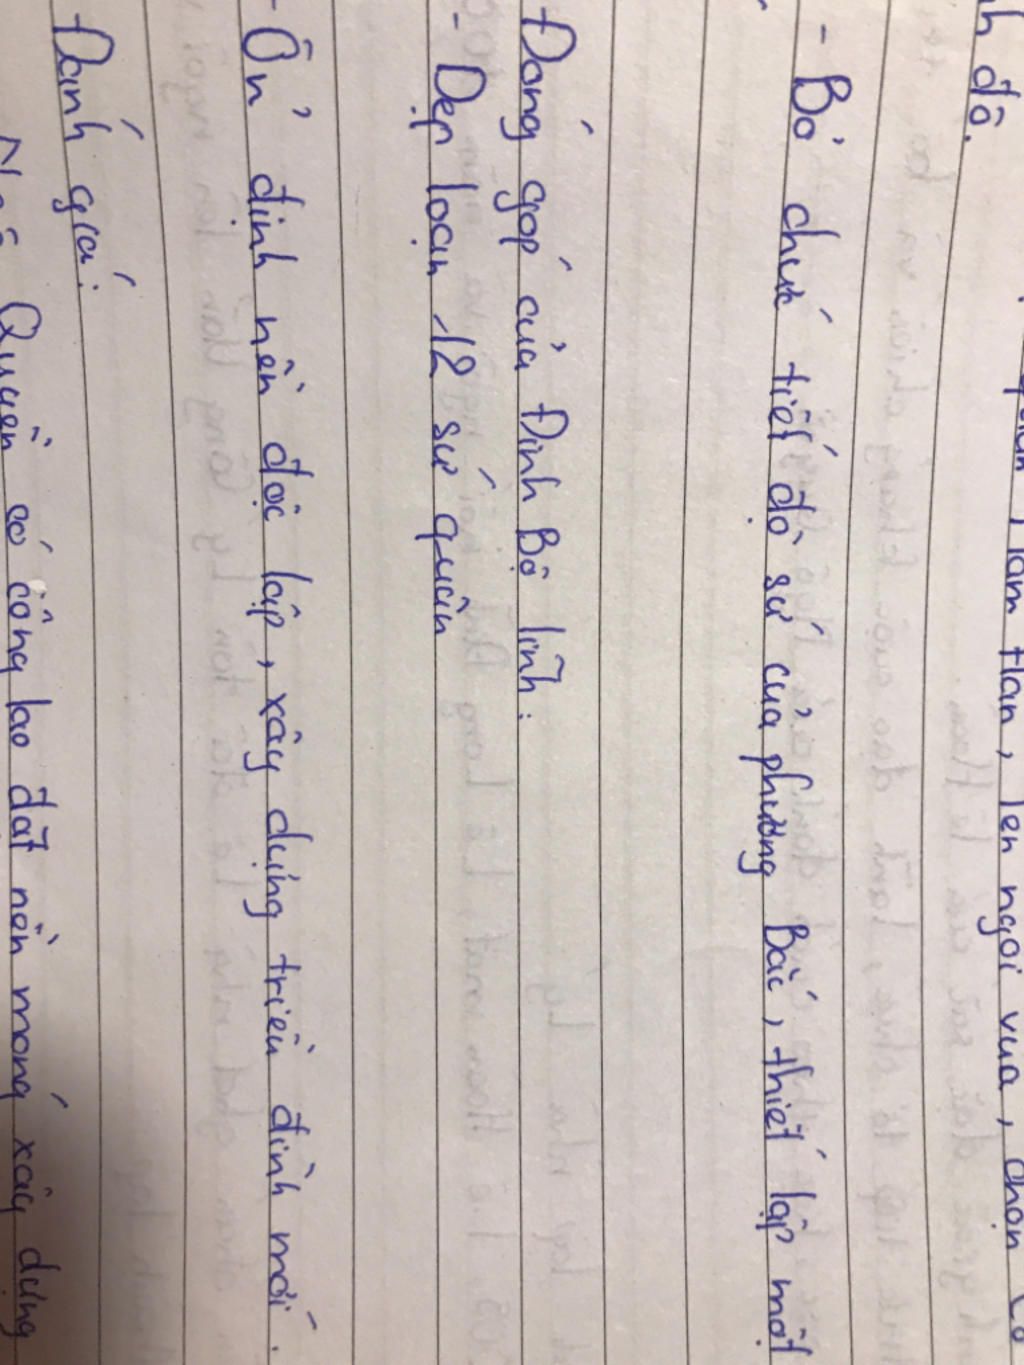 Nam Hán, lên ngôi vua, chọn Cổ
đô.
- Bỏ chức tiết độ sứ của phương Bắc, thiết lập một
Đóng góp của Đinh Bộ lĩnh:
- Dẹp loạn 12 sứ quân
- Ổn định nền độc lập, xây dựng triều đình mới.
Đánh giá:
Quyền có công lao đặt nền móng xây dựng